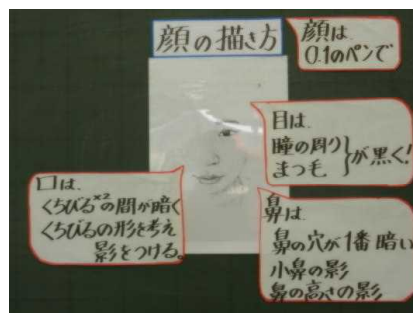 顔の描き方
顔は.
0.1のペンで
目は.
瞳の周り
まつ毛
}が黒く!
口は.
くちびる×2の間が暗く
くちびるの形を考え
影をつける。
鼻は.
鼻の穴が1番暗い
小鼻の影
鼻の高さの影